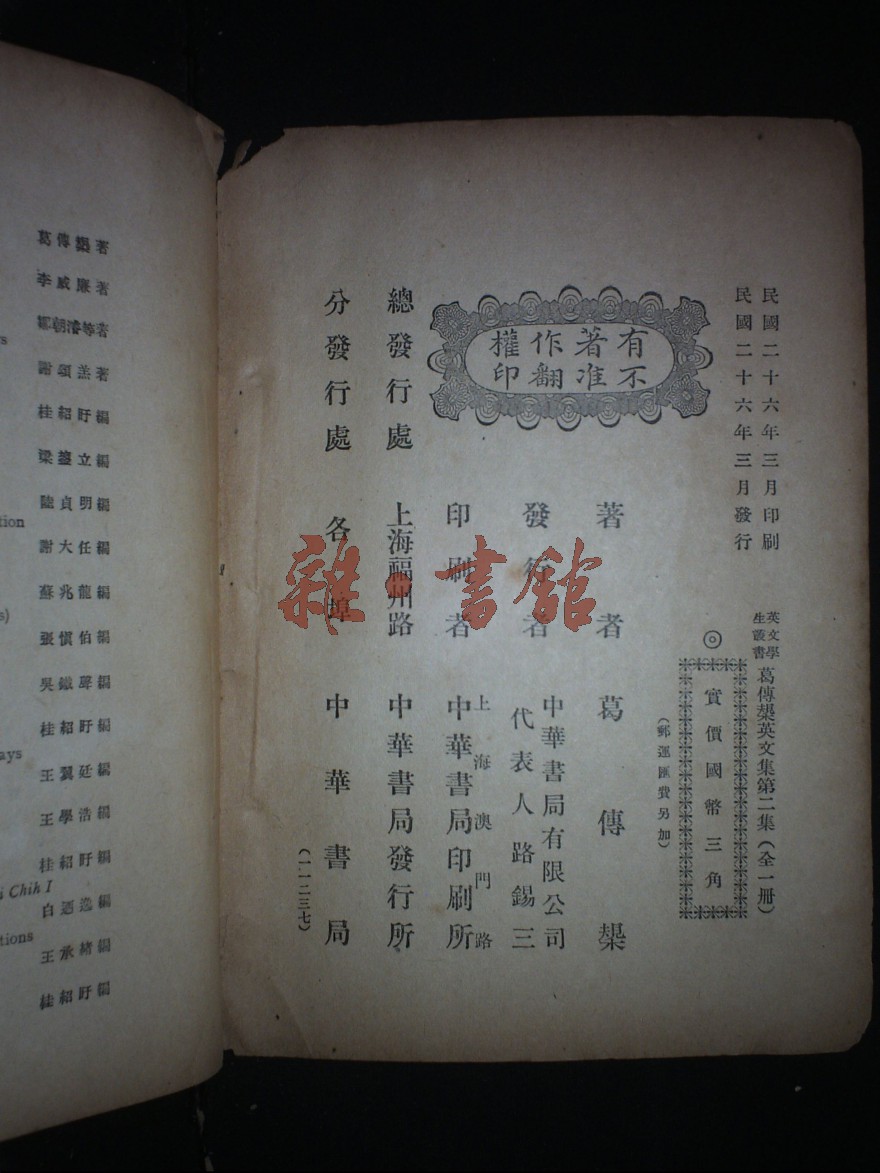 民國二十六年三月印刷
民國二十六年三月發行
英文學
生叢書
葛傳槼英文集第二集（全一册）
◎
實價國幣三角
（郵運匯費另加）
有著作權
不准翻印
著者 葛傳槼
發行者 中華書局有限公司
代表人 路錫三
印刷者 上海澳門路
中華書局印刷所
總發行處 上海福州路 中華書局發行所
分發行處 各埠 中華書局
（一一二三七）
雜·書館
葛傳槼著
李威廉著
鄒朝濬等著
謝頌羔著
桂紹盱編
梁鋆立編
陸貞明編
謝大任編
蘇兆龍編
張慎伯編
吳鐵聲編
桂紹盱編
王翼廷編
王學浩編
桂紹盱編
王承緒編
桂紹盱編
s
tion
s)
ays
Chih I
tions